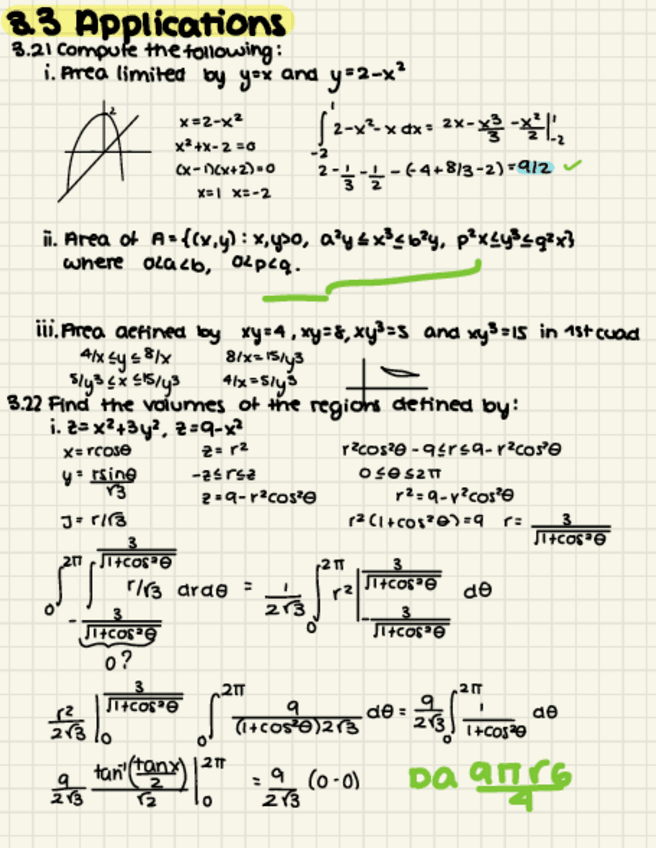 3.3 Applications
3.21 Compute the following:
i. Area limited by y=x and y=2-x²
2
x=2-x²
x²+x-2=0
(x-1)(x+2)=0
x=1 x=-2
∫₋₂¹ 2-x²-x dx = 2x - x³/3 - x²/2 |₋₂¹
2 - 1/3 - 1/2 - (-4+8/3-2) = 9/2 ✓
ii. Area of A={(x,y): x,y>0, a²y≤x³≤b²y, p²x≤y³≤q²x}
where 0<a<b, 0<p<q.
iii. Area defined by xy=4, xy=8, xy³=5 and xy³=15 in 1st cuad
4/x≤y≤8/x 8/x=15/y³
5/y³≤x≤15/y³ 4/x=5/y³
3.22 Find the volumes of the regions defined by:
i. z=x²+3y², z=9-x²
x=rcosθ z=r² r²cos²θ-9≤r≤9-r²cos²θ
y=rsinθ/√3 -z≤r≤z 0≤θ≤2π
z=9-r²cos²θ r²=9-r²cos²θ
J=r/√3 r²(1+cos²θ)=9 r=3/√(1+cos²θ)
∫₀^2π ∫ from -3/√(1+cos²θ) to 3/√(1+cos²θ) r/√3 drdθ = 1/(2√3) ∫₀^2π r² | from -3/√(1+cos²θ) to 3/√(1+cos²θ) dθ
0?
r²/(2√3) |₀^3/√(1+cos²θ) ∫₀^2π 9/((1+cos²θ)2√3) dθ = 9/(2√3) ∫₀^2π 1/(1+cos²θ) dθ
9/(2√3) tan⁻¹(tanx/2)/√2 |₀^2π = 9/(2√3) (0-0) DA 9π√6/4